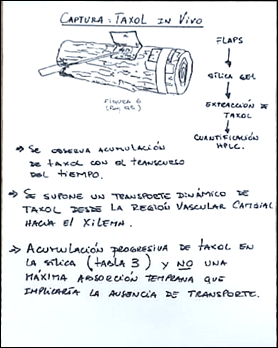 CAPTURA: TAXOL IN VIVO
FLAPS
SÍLICA GEL
EXTRACCIÓN DE
TAXOL
CUANTIFICACIÓN
HPLC.
FIGURA 6
⇒ SE OBSERVA ACUMULACIÓN
DE TAXOL CON EL TRANSCURSO
DEL TIEMPO.
⇒ SE SUPONE UN TRANSPORTE DINÁMICO DE
TAXOL DESDE LA REGIÓN VASCULAR CAMBIAL
HACIA EL XILEMA.
⇒ ACUMULACIÓN PROGRESIVA DE TAXOL EN
LA SÍLICA (TABLA 3) Y NO UNA
MÁXIMA ADSORCIÓN TEMPRANA QUE
IMPLICARÍA LA AUSENCIA DE TRANSPORTE.